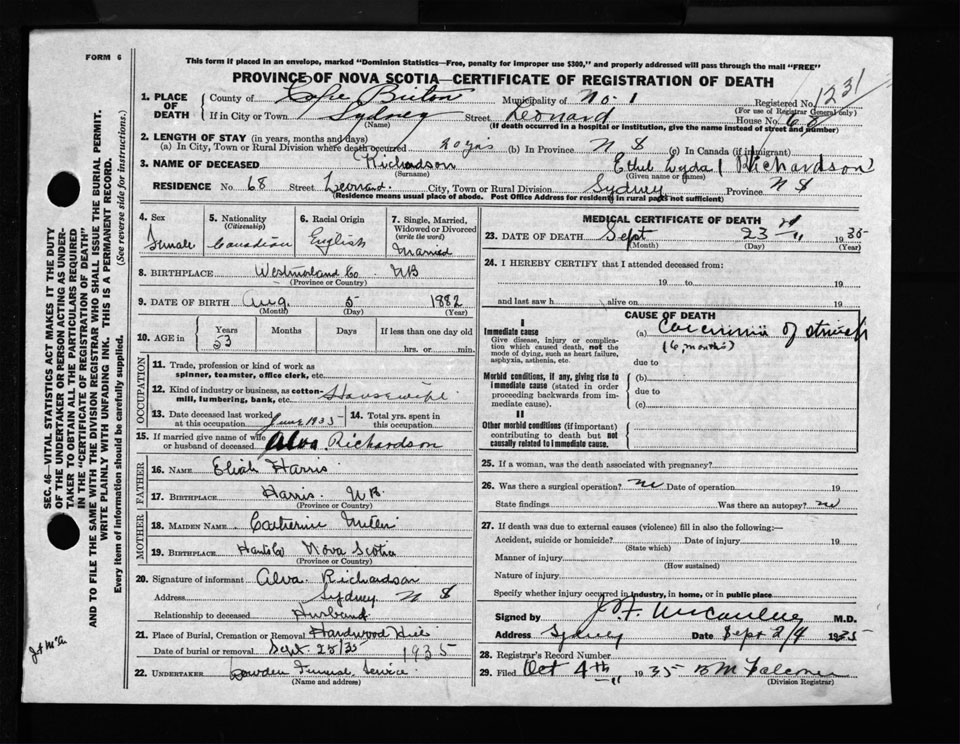 FORM 6
This form if placed in an envelope, marked "Dominion Statistics—Free, penalty for improper use $300," and properly addressed will pass through the mail "FREE"
PROVINCE OF NOVA SCOTIA—CERTIFICATE OF REGISTRATION OF DEATH
1. PLACE OF DEATH
County of Cape Breton Municipality of No. 1 Registered No. 1231
(For use of Registrar General only)
If in City or Town Sydney Street Leonard House No. 68
(Name) (If death occurred in a hospital or institution, give the name instead of street and number)
2. LENGTH OF STAY (in years, months and days)
(a) In City, Town or Rural Division where death occurred 20 yrs (b) In Province N S (c) In Canada (if immigrant)
3. NAME OF DECEASED Richardson Ethel Lyda (Richardson)
(Surname) (Given name or names)
RESIDENCE No. 68 Street Leonard City, Town or Rural Division Sydney Province N S
(Residence means usual place of abode. Post Office Address for residents in rural parts not sufficient)
4. Sex Female
5. Nationality (Citizenship) Canadian
6. Racial Origin English
7. Single, Married, Widowed or Divorced (write the word) Married
8. BIRTHPLACE Westmorland Co. NB
(Province or Country)
9. DATE OF BIRTH Aug. 5 1882
(Month) (Day) (Year)
10. AGE in Years Months Days If less than one day old
53 hrs. or min.
OCCUPATION
11. Trade, profession or kind of work as spinner, teamster, office clerk, etc.
12. Kind of industry or business, as cotton-mill, lumbering, bank, etc. Housewife
13. Date deceased last worked at this occupation June 1935
14. Total yrs. spent in this occupation
15. If married give name of wife or husband of deceased Alva Richardson
FATHER
16. NAME Harris
17. BIRTHPLACE Harris. N B.
(Province or Country)
MOTHER
18. MAIDEN NAME Catherine
19. BIRTHPLACE Hants Co Nova Scotia
(Province or Country)
20. Signature of informant Alva Richardson
Address Sydney N S
Relationship to deceased Husband
21. Place of Burial, Cremation or Removal Hardwood Hill
Date of burial or removal Sept. 25/35 1935
22. UNDERTAKER Funeral Service
(Name and address)
MEDICAL CERTIFICATE OF DEATH
23. DATE OF DEATH Sept 23rd 1935
(Month) (Day) (Year)
24. I HEREBY CERTIFY that I attended deceased from:
19 to 19
and last saw h alive on 19
CAUSE OF DEATH
I
Immediate cause (a) Carcinoma of stomach
Give disease, injury or complication which caused death, not the mode of dying, such as heart failure, asphyxia, asthenia, etc.
(6 months)
due to
Morbid conditions, if any, giving rise to immediate cause (stated in order proceeding backwards from immediate cause).
(b)
due to
(c)
II
Other morbid conditions (if important) contributing to death but not causally related to immediate cause.
25. If a woman, was the death associated with pregnancy?
26. Was there a surgical operation? no Date of operation 19
State findings Was there an autopsy? no
27. If death was due to external causes (violence) fill in also the following:—
Accident, suicide or homicide? Date of injury 19
(State which)
Manner of injury
(How sustained)
Nature of injury
Specify whether injury occurred in industry, in home, or in public place
Signed by M.D.
Address Sydney Date Sept 24 1935
28. Registrar's Record Number
29. Filed Oct 4th 1935
(Division Registrar)
SEC. 46—VITAL STATISTICS ACT MAKES IT THE DUTY
OF THE UNDERTAKER OR PERSON ACTING AS UNDER-
TAKER TO OBTAIN ALL THE PARTICULARS REQUIRED
IN THE "CERTIFICATE OF REGISTRATION OF DEATH"
AND TO FILE THE SAME WITH THE DIVISION REGISTRAR WHO SHALL ISSUE THE BURIAL PERMIT.
WRITE PLAINLY WITH UNFADING INK. THIS IS A PERMANENT RECORD.
Every item of information should be carefully supplied. (See reverse side for instructions.)